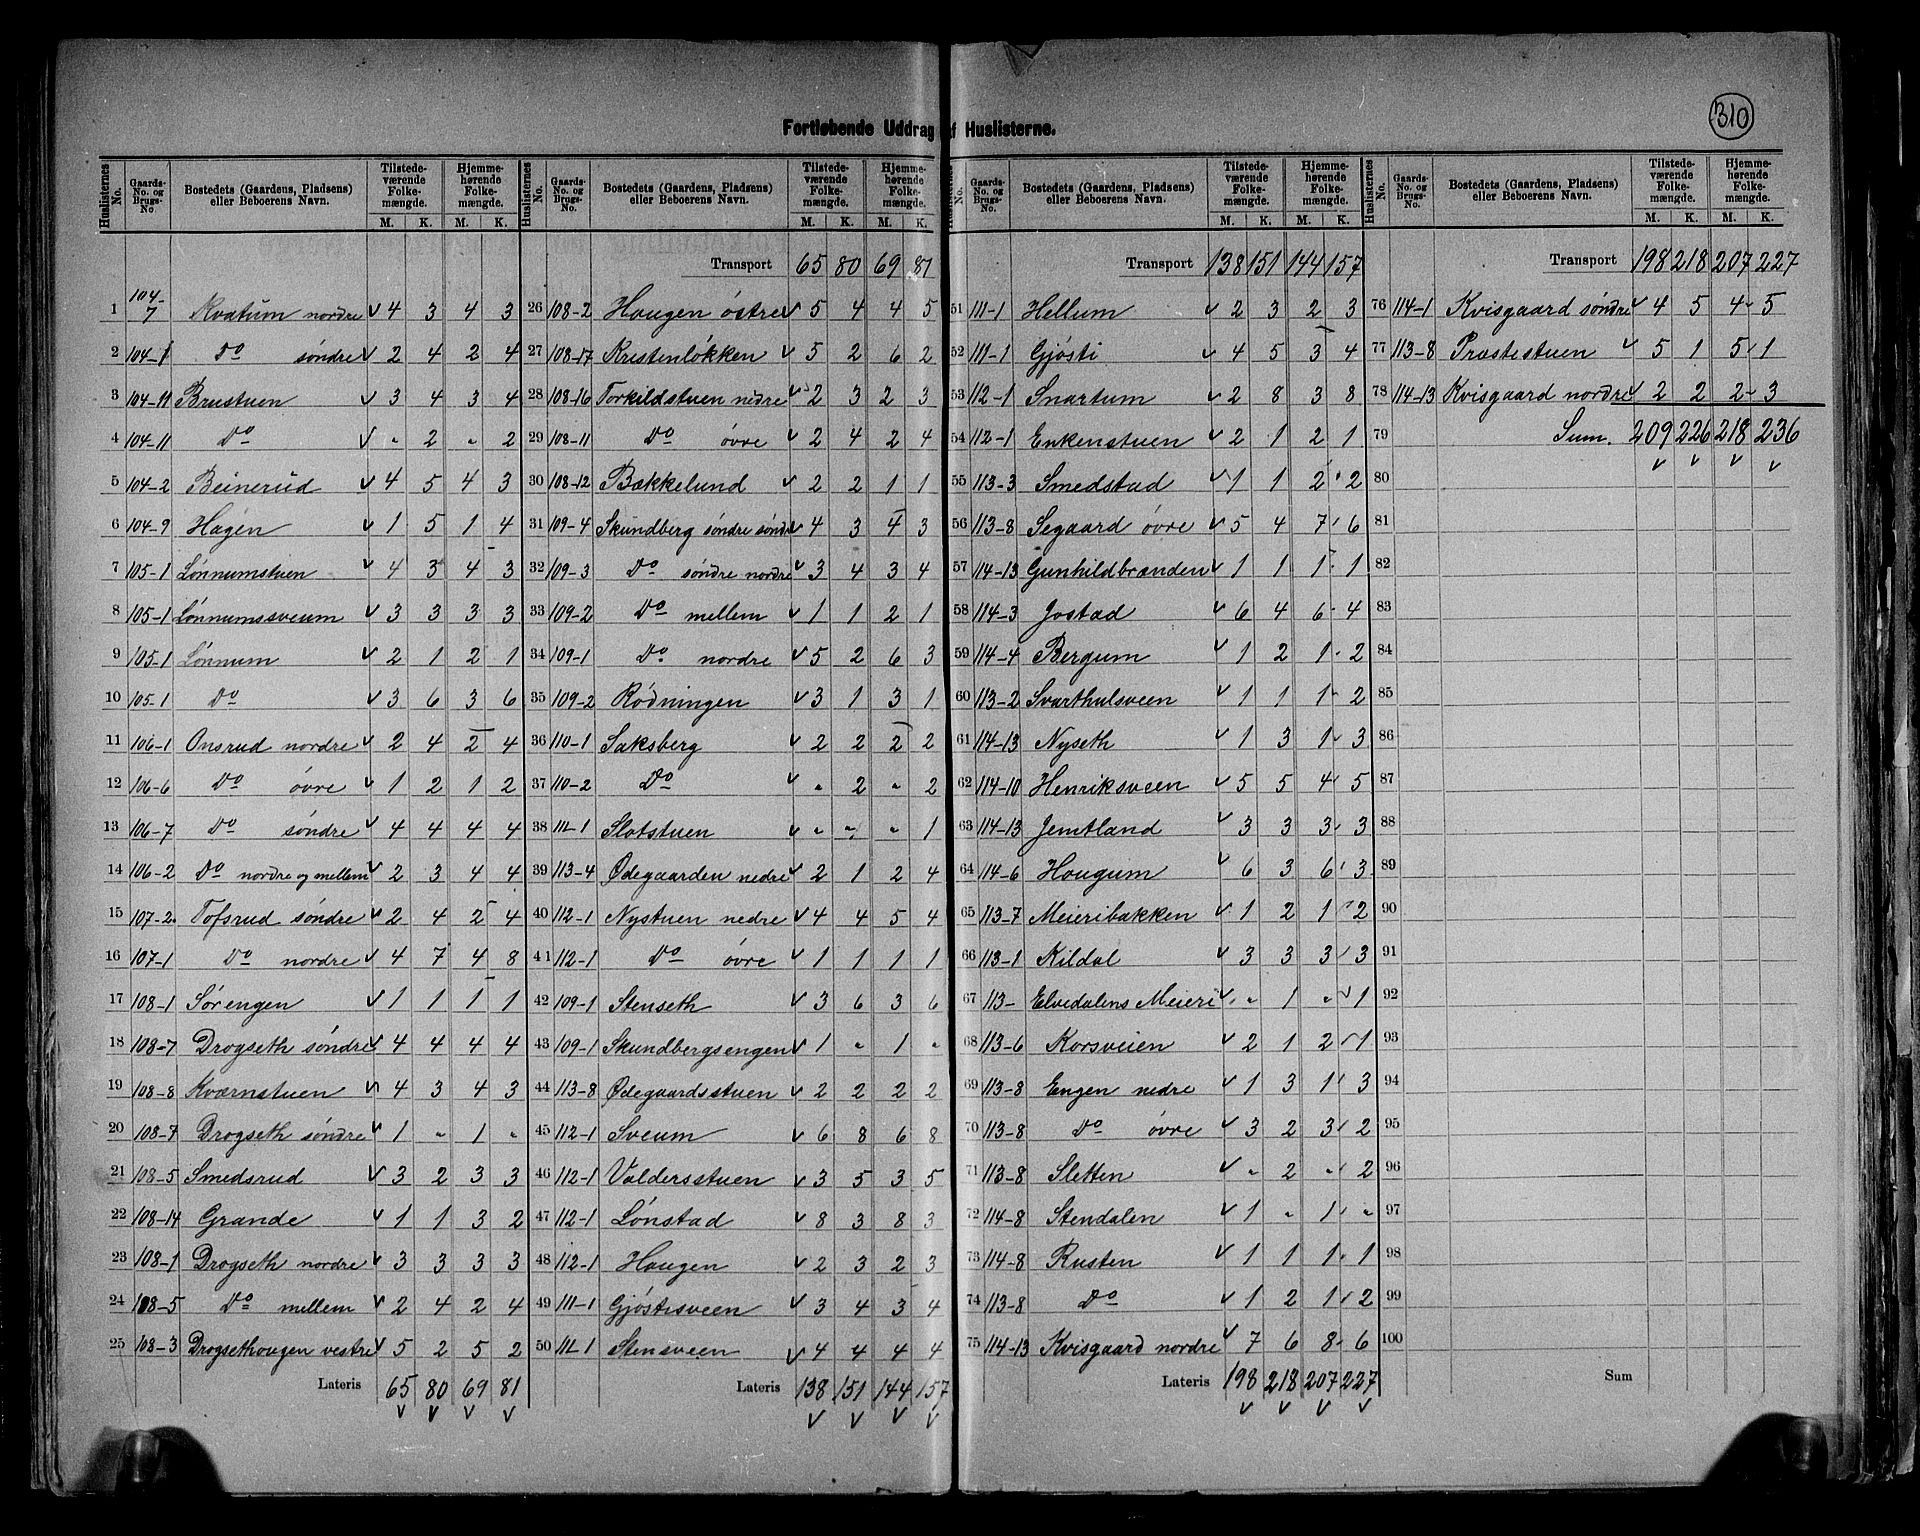 310
Fortløbende Uddrag af Huslisterne.
Huslisternes No. | Gaards-No. og Brugs-No. | Bostedets (Gaardens, Pladsens) eller Beboerens Navn. | Tilstedeværende Folkemængde. M. K. | Hjemmehørende Folkemængde. M. K.
1 104-7 Kvatum nordre v 4 3 4 3
2 104-1 Do søndre v 2 4 2 4
3 104-11 Brustuen v 3 4 3 4
4 104-11 Do v " 2 " 2
5 104-2 Beinerud v 4 5 4 3
6 104-9 Hagen v 1 5 1 4
7 105-1 Lønnumstuen v 4 3 4 3
8 105-1 Lønnumssveum v 3 3 3 3
9 105-1 Lønnum v 2 1 2 1
10 105-1 Do v 3 6 3 6
11 106-1 Onsrud nordre v 2 4 2 4
12 106-6 Do øvre v 1 2 1 2
13 106-7 Do søndre v 4 4 4 4
14 106-2 Do nordre og mellem v 2 3 4 4
15 107-2 Tofsrud søndre v 2 4 2 4
16 107-1 Do nordre v 4 7 4 8
17 108-1 Sørengen v 1 1 1 1
18 108-7 Drogseth søndre v 4 4 4 4
19 108-8 Kværnstuen v 4 3 4 3
20 108-7 Drogseth søndre v 1 " 1 "
21 108-5 Smedsrud v 3 2 3 3
22 108-14 Grande v 1 1 3 2
23 108-1 Drogseth nordre v 3 3 3 3
24 108-5 Do mellem v 2 4 2 4
25 108-3 Drogsethougen vestre v 5 2 5 2
Lateris 65 80 69 81
v v v v
Huslisternes No. | Gaards-No. og Brugs-No. | Bostedets (Gaardens, Pladsens) eller Beboerens Navn. | Tilstedeværende Folkemængde. M. K. | Hjemmehørende Folkemængde. M. K.
Transport 65 80 69 81
26 108-2 Haugen østre v 5 4 4 5
27 108-17 Kristenløkken v 5 2 6 2
28 108-16 Torkildstuen nedre v 2 3 2 3
29 108-11 Do øvre v 2 4 2 4
30 108-12 Bækkelund v 2 2 1 1
31 109-4 Skundberg søndre søndre v 4 3 4 3
32 109-3 Do søndre nordre v 3 4 3 4
33 109-2 Do mellem v 1 1 2 1
34 109-1 Do nordre v 5 2 6 3
35 109-2 Rødningen v 3 1 3 1
36 110-1 Saksberg v 2 2 2 2
37 110-2 Do v " 2 " 2
38 111-1 Slotstuen v " " " 1
39 113-4 Ødegaarden nedre v 2 1 2 4
40 112-1 Nystuen nedre v 4 4 5 4
41 112-1 Do øvre v 1 1 1 1
42 109-1 Stenseth v 3 6 3 6
43 109-1 Skundbergsengen v 1 " 1 "
44 113-8 Ødegaardsstuen v 2 2 2 2
45 112-1 Sveum v 6 8 6 8
46 112-1 Valdersstuen v 3 5 3 5
47 112-1 Lønstad v 8 3 8 3
48 112-1 Haugen v 2 3 2 3
49 111-1 Gjøstisveen v 3 4 3 4
50 111-1 Stensveen v 4 4 4 4
Lateris 138 151 144 157
v v v v
Huslisternes No. | Gaards-No. og Brugs-No. | Bostedets (Gaardens, Pladsens) eller Beboerens Navn. | Tilstedeværende Folkemængde. M. K. | Hjemmehørende Folkemængde. M. K.
Transport 138 151 144 157
51 111-1 Hellum v 2 3 2 3
52 111-1 Gjøsti v 4 5 3 4
53 112-1 Snartum v 2 8 3 8
54 112-1 Enkenstuen v 2 1 2 1
55 113-3 Smedstad v 1 1 2 2
56 113-8 Segaard øvre v 5 4 7 6
57 114-13 Gunhildbrænden v 1 1 1 1
58 114-3 Jostad v 6 4 6 4
59 114-4 Bergum v 1 2 1 2
60 113-2 Svarthulsveen v 1 1 1 2
61 114-13 Nyseth v 1 3 1 3
62 114-10 Henriksveen v 5 5 4 5
63 114-13 Jemtland v 3 3 3 3
64 114-6 Hougum v 6 3 6 3
65 113-7 Meieribakken v 1 2 1 2
66 113-1 Kildal v 3 3 3 3
67 113- Elvedalens Meieri v " 1 " 1
68 113-6 Korsveien v 2 1 2 1
69 113-8 Engen nedre v 1 3 1 3
70 113-8 Do øvre v 3 2 3 2
71 113-8 Sletten v " 2 " 2
72 114-8 Stendalen v 1 " 1 "
73 114-8 Rusten v 1 1 1 1
74 113-8 Do v 1 2 1 2
75 114-13 Kvisgaard nordre v 7 6 8 6
Lateris 198 218 207 227
v v v v
Huslisternes No. | Gaards-No. og Brugs-No. | Bostedets (Gaardens, Pladsens) eller Beboerens Navn. | Tilstedeværende Folkemængde. M. K. | Hjemmehørende Folkemængde. M. K.
Transport 198 218 207 227
76 114-1 Kvisgaard søndre v 4 5 4 5
77 113-8 Præstestuen v 5 1 5 1
78 114-13 Kvisgaard nordre v 2 2 2 3
79 Sum. 209 226 218 236
v v v v
80
81
82
83
84
85
86
87
88
89
90
91
92
93
94
95
96
97
98
99
100
Sum